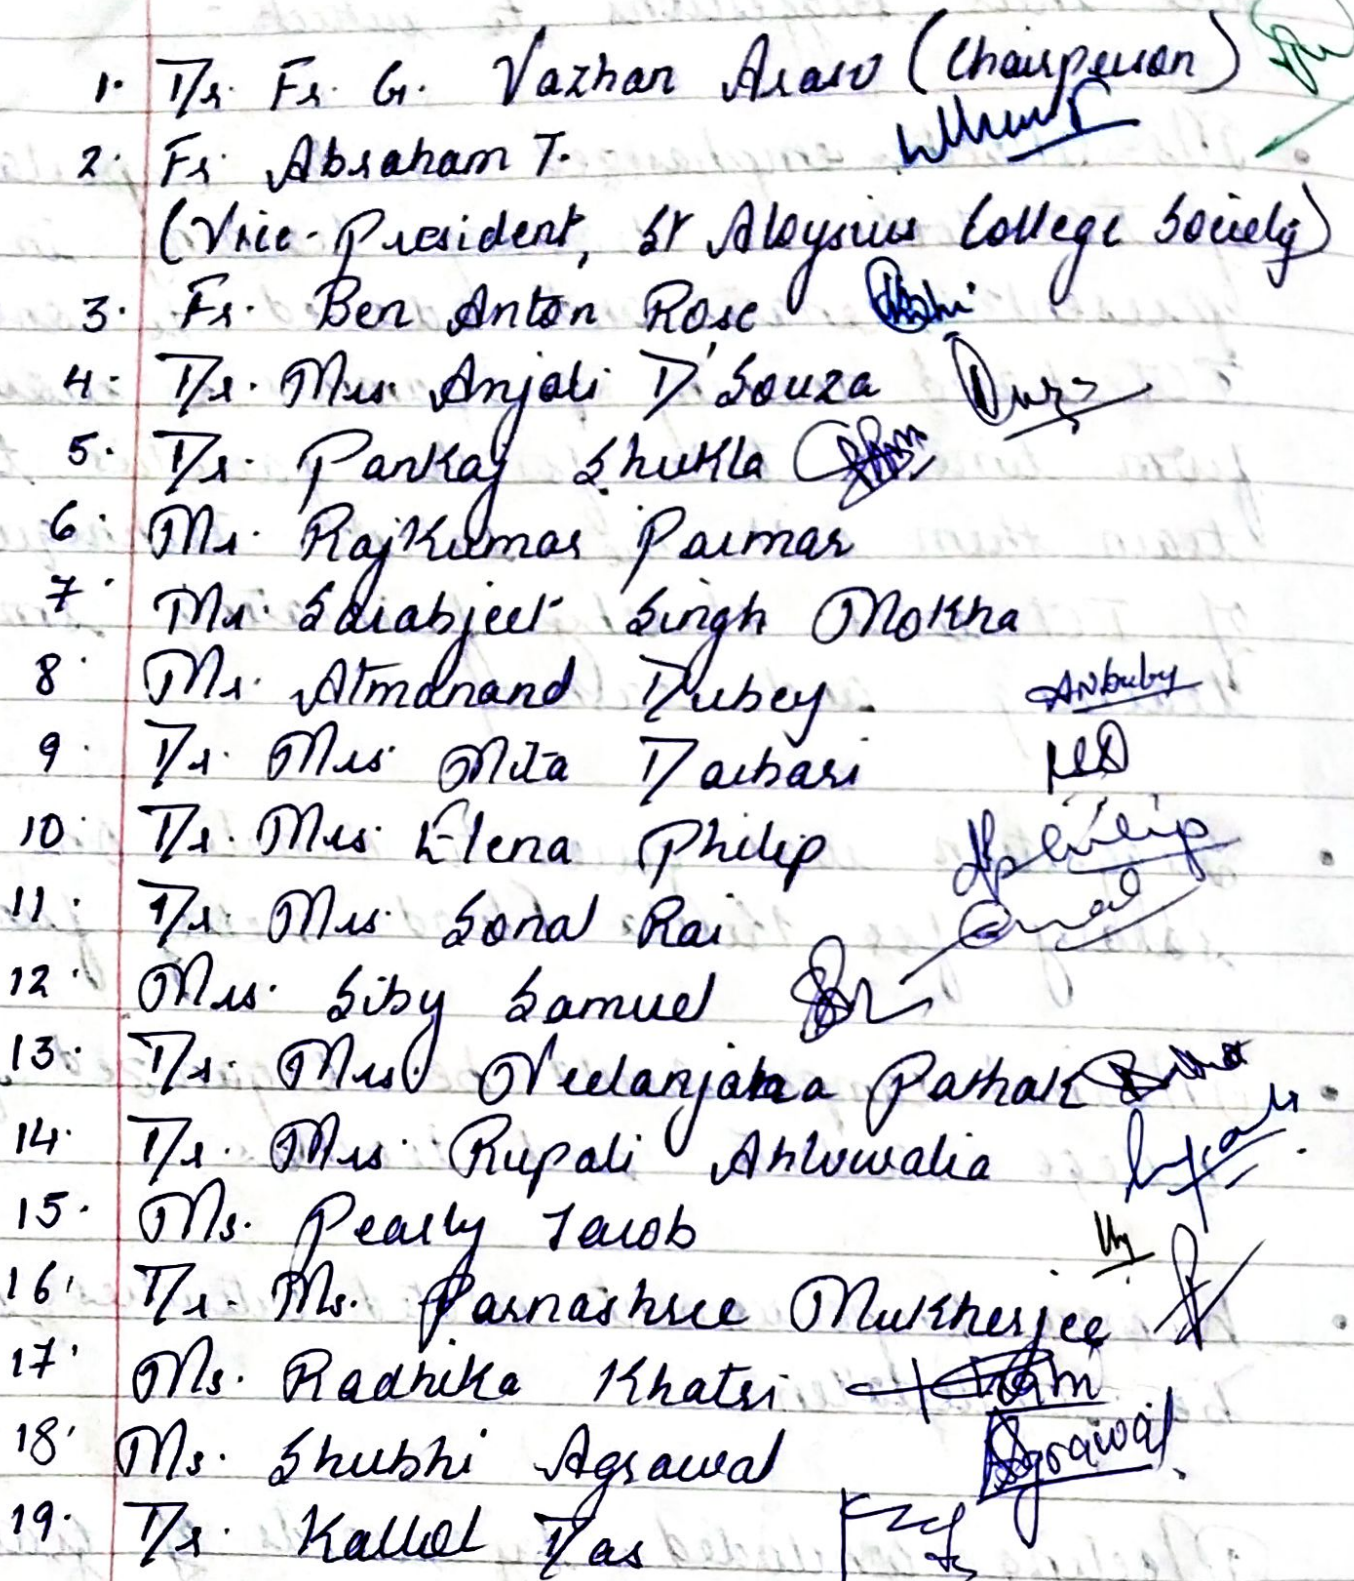 1. Dr. Fr. G. Vazhan Arasu (Chairperson)
2. Fr. Abraham T.
(Vice-President, St Aloysius College Society)
3. Fr. Ben Anton Rose
4. Dr. Mrs. Anjali D'Souza
5. Dr. Pankaj Shukla
6. Mr. Rajkumar Parmar
7. Mr. Sarabjeet Singh Mokha
8. Mr. Atmanand Dubey. ANDubey
9. Dr. Mrs Mita Darbari
10. Dr. Mrs. Elena Philip Philip
11. Dr. Mrs. Sonal Rai
12. Mrs. Siby Samuel
13. Dr. Mrs. Neelanjana Pathak
14. Dr. Mrs. Rupali Ahluwalia
15. Ms. Pearly Jacob
16. Dr. Ms. Parnashree Mukherjee
17. Ms. Radhika Khatri
18. Ms. Shubhi Agrawal Agrawal
19. Dr. Kallol Das